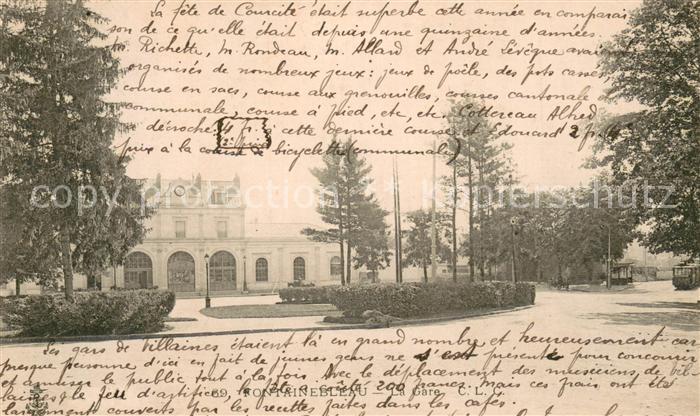 La fête de Courcité était superbe cette année en comparai
son de ce qu'elle était depuis une quinzaine d'années.
M. Richette, M. Rondeau, M. Allard et André Lévêque avai
organisés de nombreux jeux : jeux de poêle, des pots cassés
course en sacs, course aux grenouilles, courses cantonale
communale, course à pied, etc, etc. Cottereau Alfred
décroché 4 fr. à cette dernière course et Edouard 2
prix à la course de bicyclette (communale)
copyright Picclick Kipschutz
Les gars de Villaines étaient là en grand nombre et heureusement car
presque personne d'ici en fait de jeunes gens ne s'est présenté pour concourir
et amuser le public tout à la fois. Avec le déplacement des musiciens de Vil
laines, le feu d'artifice, la fête a coûté 200 francs. Mais ces frais ont été
largement couverts par les recettes faites dans les cafés.
69. FONTAINEBLEAU — La Gare C. L. C.